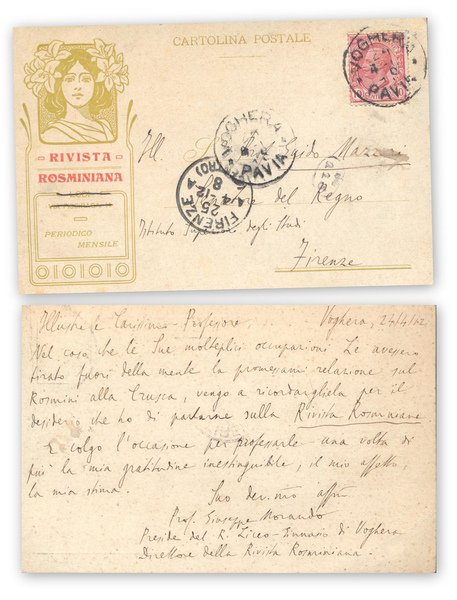 CARTOLINA POSTALE
VOGHERA
PAVIA
RIVISTA
ROSMINIANA
PERIODICO
MENSILE
VOGHERA
PAVIA
FIRENZE
25 4-12 A
8
Ill.
del Regno
Istituto Superiore degli Studi
Firenze
Illustre e Carissimo Professore, Voghera, 24/4/12
Nel caso che le Sue molteplici occupazioni Le avessero
tirato fuori della mente la promessami relazione sul
Rosmini alla Crusca, vengo a ricordarghela per il
desiderio che ho di parlarne sulla Rivista Rosminiana
E colgo l'occasione per professarle una volta di
più la mia gratitudine inestinguibile, il mio affetto,
la mia stima.
Suo dev.mo aff.mo
Prof. Giuseppe Morando
Preside del R. Liceo-Ginnasio di Voghera
Direttore della Rivista Rosminiana.